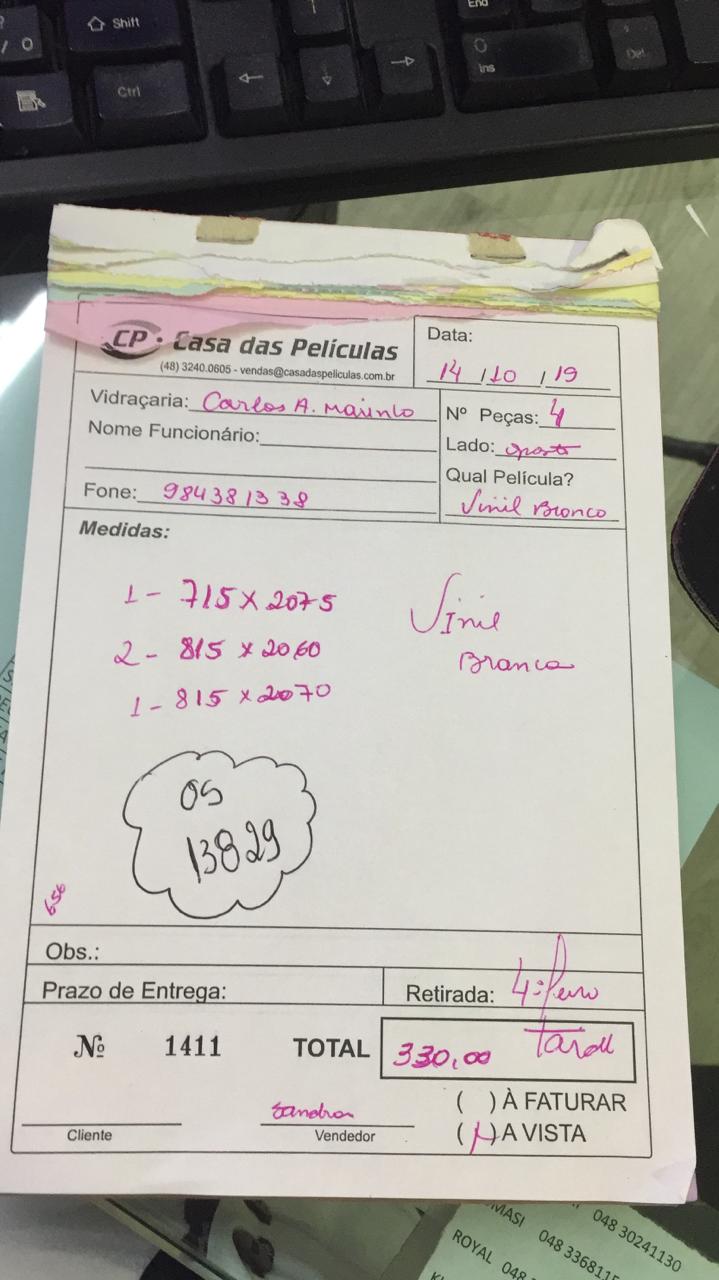 Shift
Ctrl
End
Ins
Del
CP · Casa das Películas
(48) 3240.0605 - vendas@casadaspeliculas.com.br
Data:
14 / 10 / 19
Vidraçaria: Carlos A. Marinho
Nome Funcionário:
Fone: 984381338
Nº Peças: 4
Lado: oposto
Qual Película?
Vinil Bronco
Medidas:
1 - 715 x 2075
2 - 815 x 2060
1 - 815 x 2070
Vinil
Branco
OS
13829
656
Obs.:
Prazo de Entrega:
Retirada: 4ª
Nº 1411 TOTAL 330,00
( ) À FATURAR
Sandra
Cliente
Vendedor
( ) A VISTA
MASI 048 336811
048 30241130
ROYAL 048